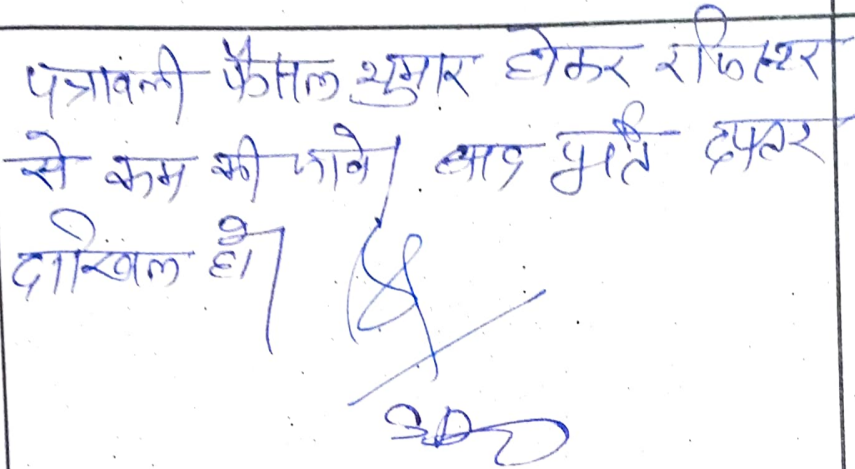 पत्रावली फैसल शुमार होकर रजिस्टर
से कम की जावे। बाद पूर्ति दफ्तर
दाखिल हो।